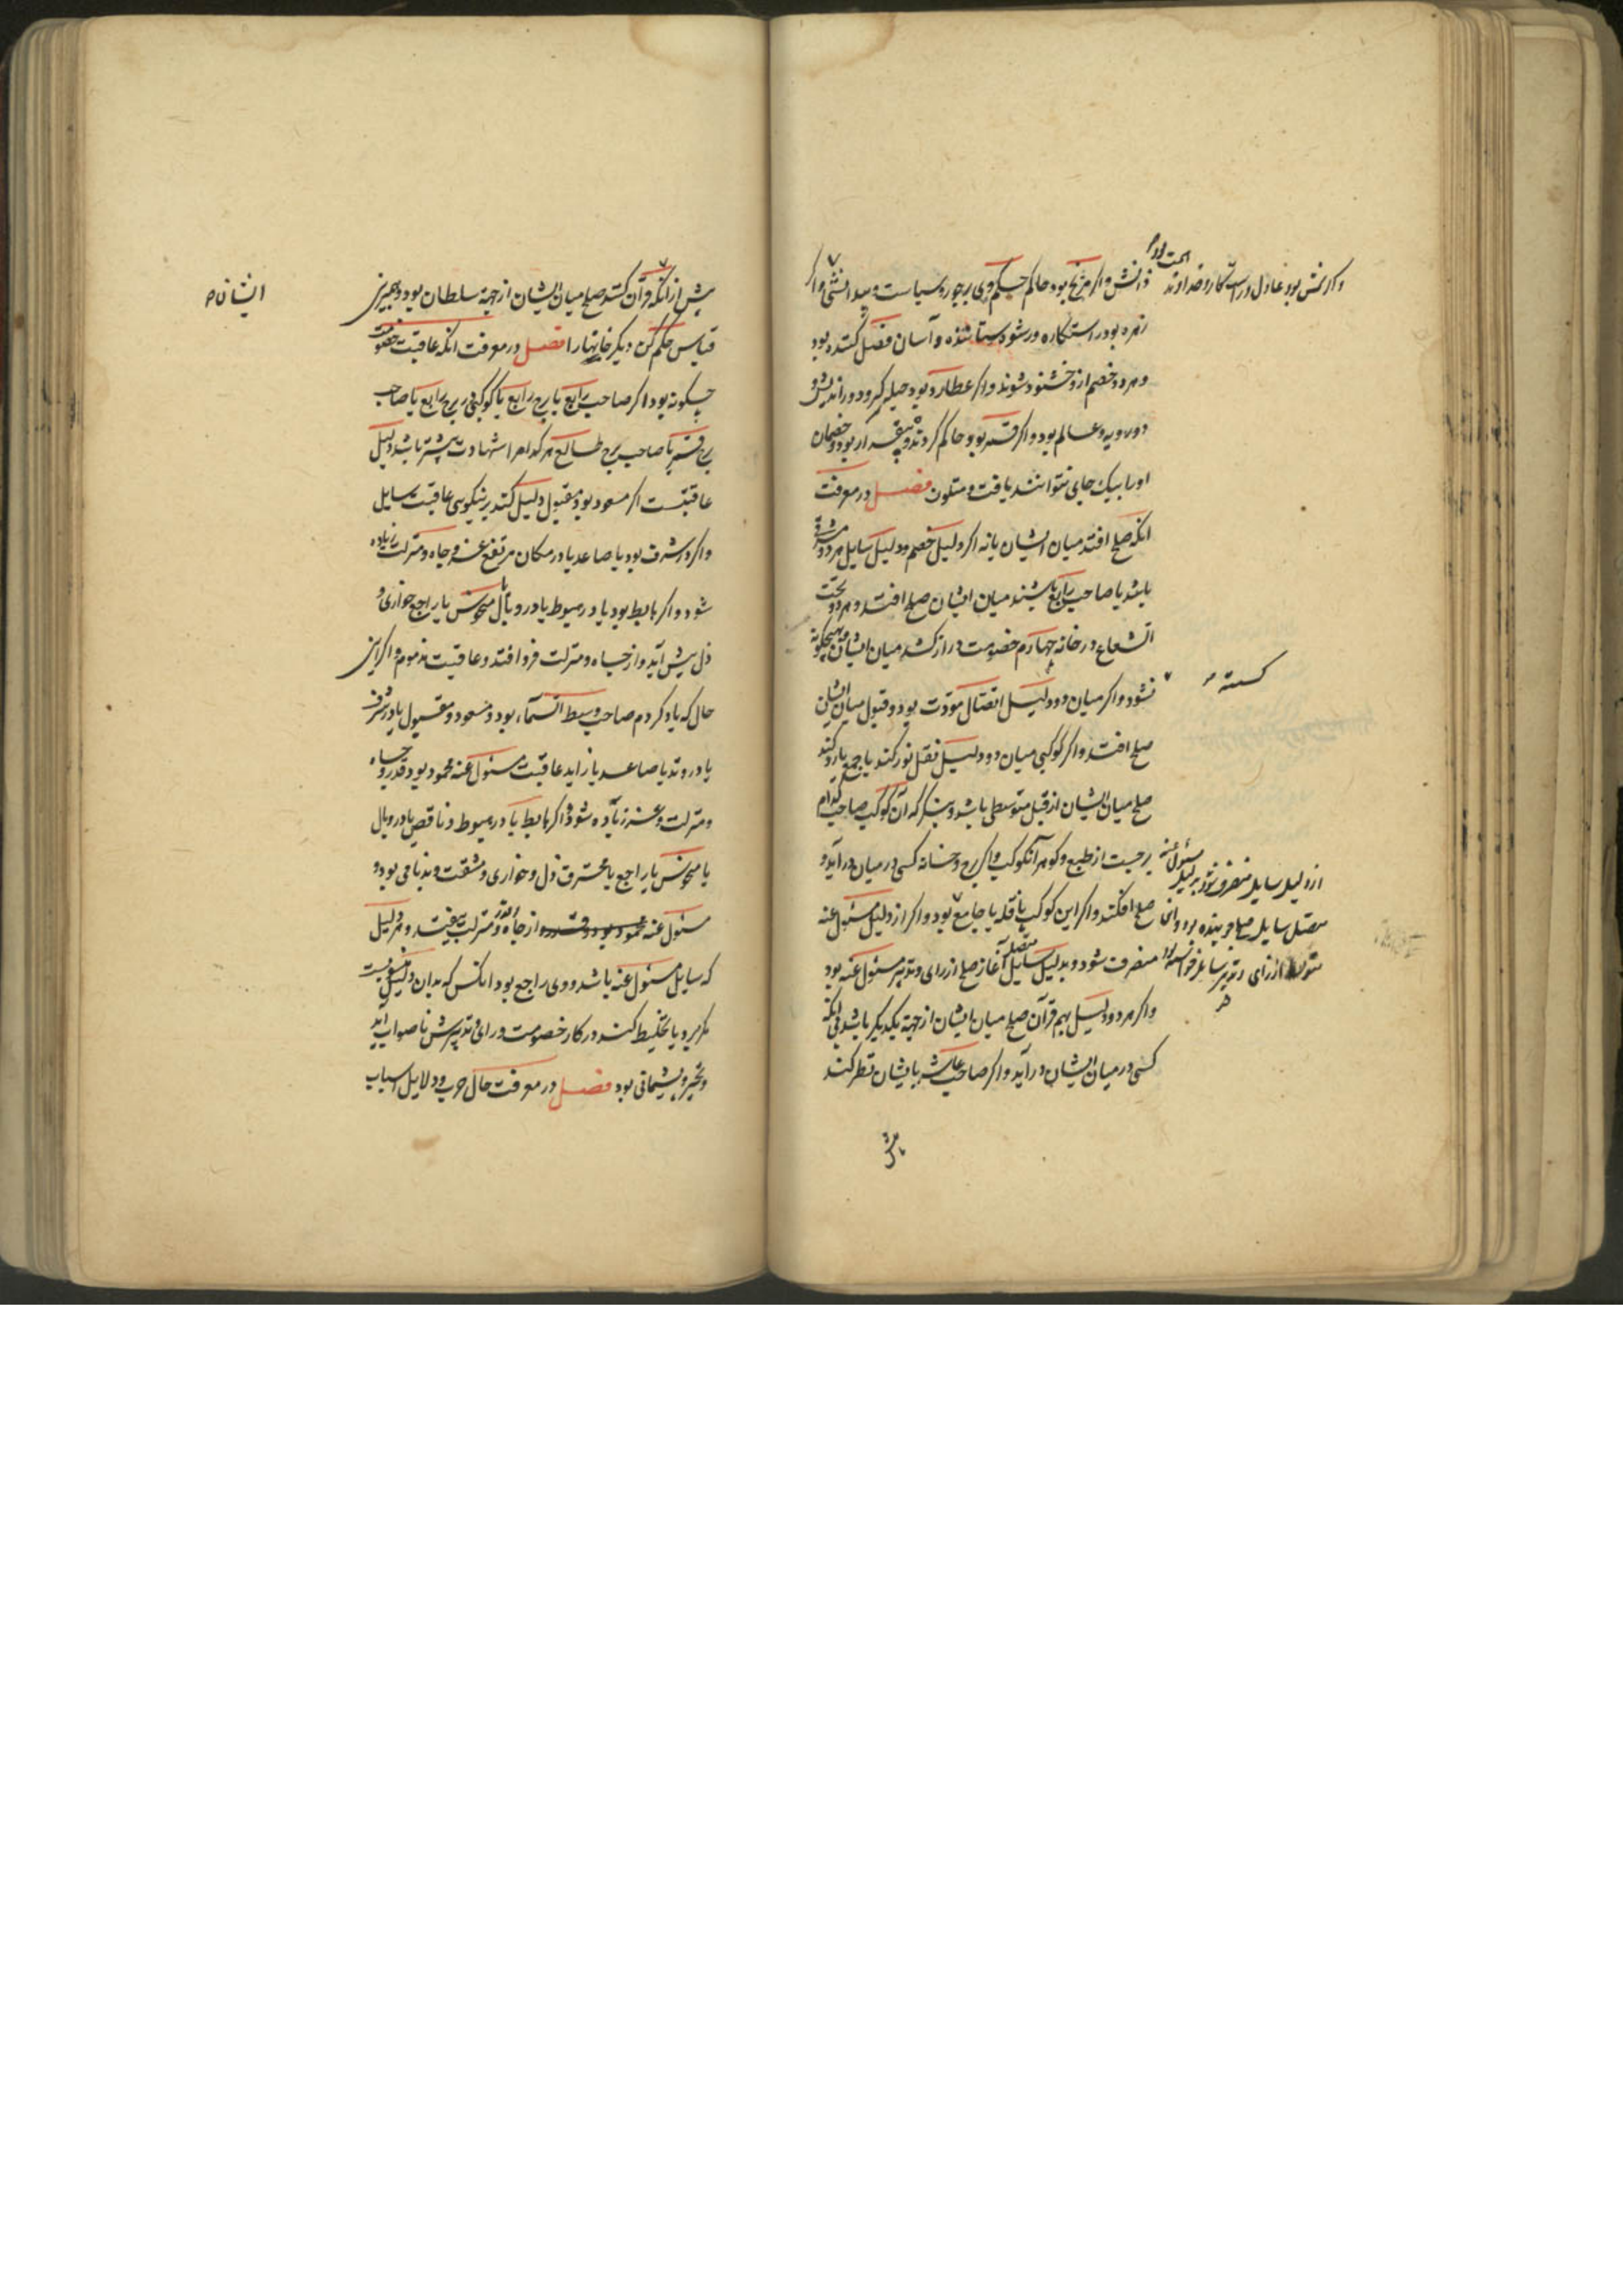 دانش و اگر مریخ بود حاکم حکم وی بر جور و سیاست و بیدانشی و اگر
زهره بود راستکاره و رشوه ستاننده و آسان فصل کننده بود
و هر دو خصم ازو خشنود شوند و اگر عطارد بود حیله گر و دوراندیش و
دورویه و عالم بود و اگر قمر بود حاکم گردنده و بیقرار بود و خصمان
او را بیک جای نتوانند یافت و متلون فصل در معرفت
انکه صلح افتد میان ایشان یا نه اگر دلیل خصم و دلیل سایل هر دو
باشد یا صاحب رابع باشند میان ایشان صلح افتد و هر دو تحت
الشعاع در خانه چهارم خصومت دراز کشد میان ایشان و هیچگونه
گسسته
نشود و اگر میان دو دلیل اتصال مودت بود و قبول میان ایشان
صلح افتد و اگر کوکبی میان دو دلیل نقل نور کند یا جمع یا رد کند
صلح میان ایشان از قبل متوسطی باشد و بنگر که آن کوکب صاحب کدام
برجست از طبع و گوهر آنکوکب و آن برج و خانه کسی در میان درآید و
صلح افکند و اگر این کوکب ناقله یا جامع بود و اگر از دلیل مسئول عنه
منصرف شود و بدلیل سایل متصل آغاز صلح از رای و تدبیر مسئول عنه بود
و اگر هر دو دلیل بهم قرآن صلح میان ایشان از جهة یکدیگر باشد بی انکه
کسی در میان ایشان درآید و اگر صاحب عاشر بایشان نظر کند
و اگر شمس بود عادل و راست کار و خداوند
از دلیل سایل منصرف شود بدلیل مسئول عنه
متصل سایل صلح جوینده بود و آغاز
از رای و تدبیر سایل
پیش
پیش از انکه قرآن کنند صلح میان ایشان از جهة سلطان بود و همبرین
ایشان
قیاس حکم کن دیگر خانها را فصل در معرفت انکه عاقبت خصومت
چگونه بود اگر صاحب رابع یا برج رابع یا کوکبی در برج رابع یا صاحب
برج قمر یا صاحب برج طالع هر کدام را شهادت بیشتر باشد دلیل
عاقبتست اگر مسعود بود و مقبول دلیل کند بر نیکویی عاقبت سایل
و اگر در شرف بود یا صاعد یا در مکان مرتفع عز و جاه و منزلت زیاده
شود و اگر هابط بود یا در هبوط یا در وبال یا منحوس یا راجع خواری و
ذل پیش آید و از جاه و منزلت فرو افتد و عاقبت مذموم و اگر این
حال که یاد کردم صاحب وسط السماء بود و مسعود و مقبول یا در شرف
یا در وتد یا صاعد یا زاید عاقبت مسئول عنه محمود بود و قدر و جاه
و منزلت و عز زیاده شود و اگر هابط یا در هبوط و ناقص یا در وبال
یا منحوس یا راجع یا محترق ذل و خواری و مشقت و بدنامی بود و
مسئول عنه محمود بود و قدر و از جاه و قدر و منزلت بیفتد و هر دلیل
که سایل مسئول عنه باشد و وی راجع بود انکس که بدان دلیل منسوبست
بگریزد یا تخلیط کند در کار خصومت و رای و تدبیرش ناصواب آید
و تحیر و پشیمانی بود فصل در معرفت حال حرب و دلایل اسباب